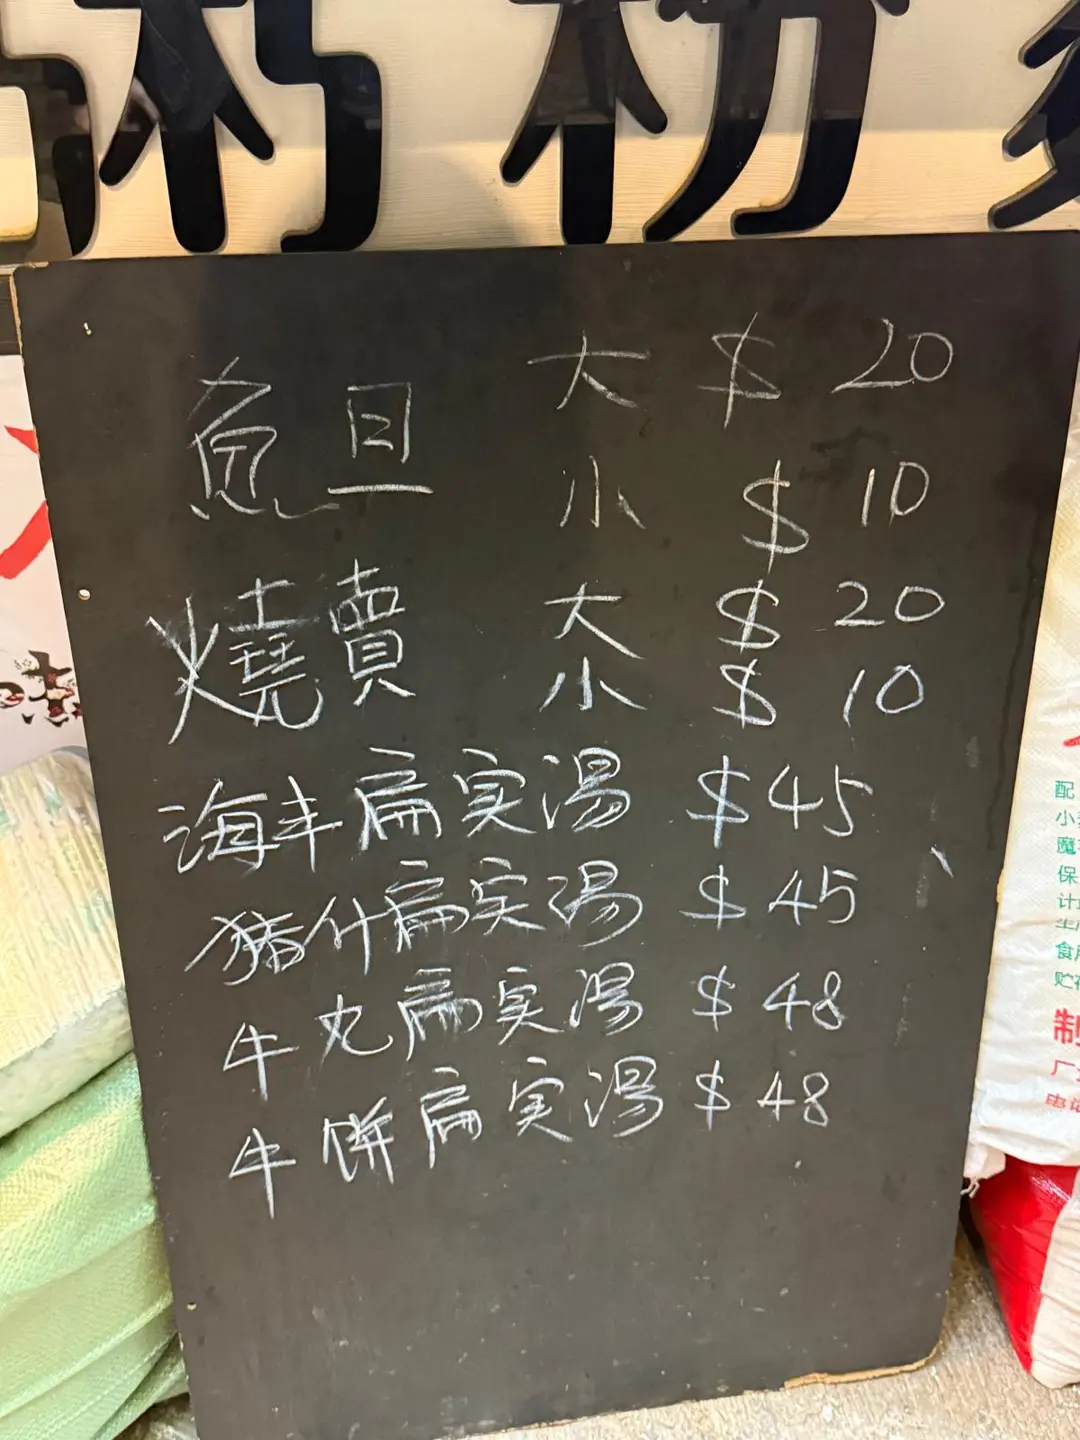 粥粉
魚旦 大 $20
小 $10
燒賣 大 $20
小 $10
海丰扁实湯 $45
猪什扁实湯 $45
牛丸扁实湯 $48
牛餅扁实湯 $48
配
小
魔
保
计
食
贮
制
厂
电